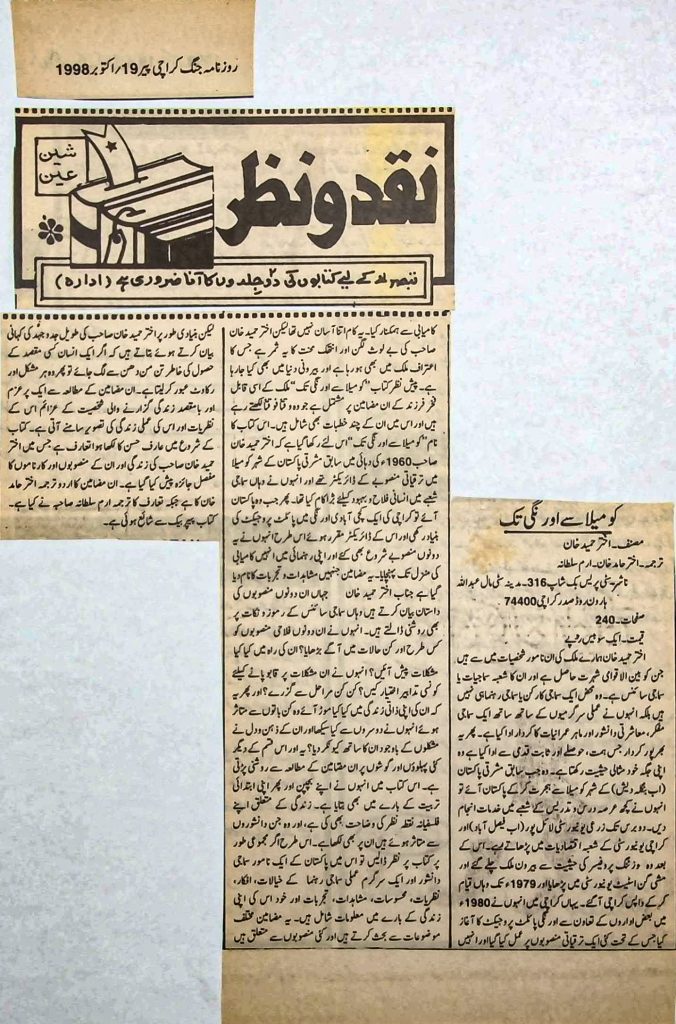 روزنامہ جنگ کراچی پیر 19/اکتوبر 1998
شین
عین
نقد و نظر
تبصرہ کے لیے کتابوں کی دو جلدوں کا آنا ضروری ہے (ادارہ)
کومیلا سے اورنگی تک
مصنف۔ اختر حمید خان
ترجمہ۔ اختر حامد خان۔ ارم سلطانہ
ناشر۔ سٹی پریس بک شاپ 316۔ مدینہ سٹی مال عبداللہ
ہارون روڈ صدر کراچی 74400
صفحات۔ 240
قیمت۔ ایک سو بیس روپے
اختر حمید خان ہمارے ملک کی ان نامور شخصیات میں سے ہیں
جن کو بین الاقوامی شہرت حاصل ہے اور ان کا شعبہ سماجیات یا
سماجی سائنس ہے۔ وہ محض ایک سماجی کارکن یا سماجی رہنما ہی نہیں
ہیں بلکہ انہوں نے عملی سرگرمیوں کے ساتھ ساتھ ایک سماجی
مفکر، معاشرتی دانشور اور ماہر عمرانیات کا کردار ادا کیا ہے۔ پھر یہ
بھرپور کردار جس ہمت، حوصلے اور ثابت قدمی سے ادا کیا ہے وہ
اپنی جگہ خود مثالی حیثیت رکھتا ہے۔ وہ جب سابق مشرقی پاکستان
(اب بنگلہ دیش) کے شہر کومیلا سے ہجرت کر کے پاکستان آئے تو
انہوں نے کچھ عرصہ درس و تدریس کے شعبے میں خدمات انجام
دیں۔ دو برس تک زرعی یونیورسٹی لائل پور (اب فیصل آباد) اور
کراچی یونیورسٹی کے شعبہ اقتصادیات میں پڑھاتے رہے۔ اس کے
بعد وہ وزٹنگ پروفیسر کی حیثیت سے بیرون ملک چلے گئے اور
مشی گن اسٹیٹ یونیورسٹی میں پڑھایا اور 1979ء تک وہاں قیام
کر کے واپس کراچی آ گئے۔ یہاں کراچی میں انہوں نے 1980ء
میں بعض اداروں کے تعاون سے اورنگی پائلٹ پروجیکٹ کا آغاز
کیا جس کے تحت کئی ایک ترقیاتی منصوبوں پر عمل کیا گیا اور انہیں
کامیابی سے ہمکنار کیا۔ یہ کام اتنا آسان نہیں تھا لیکن اختر حمید خان
صاحب کی بے لوث لگن اور انتھک محنت کا یہ ثمر ہے جس کا
اعتراف ملک میں بھی ہو رہا ہے اور بیرونی دنیا میں بھی کیا جا رہا
ہے۔ پیش نظر کتاب ”کومیلا سے اورنگی تک“ ملک کے اسی قابل
فخر فرزند کے ان مضامین پر مشتمل ہے جو وہ وقتاً فوقتاً لکھتے رہے
ہیں اور اس میں ان کے چند خطبات بھی شامل ہیں۔ اس کتاب کا
نام ”کومیلا سے اورنگی تک“ اس لئے رکھا گیا ہے کہ اختر حمید خان
صاحب 1960ء کی دہائی میں سابق مشرقی پاکستان کے شہر کومیلا
میں ترقیاتی منصوبے کے ڈائریکٹر تھے اور انہوں نے وہاں سماجی
شعبے میں انسانی فلاح و بہبود کیلئے بڑا کام کیا تھا۔ پھر جب وہ پاکستان
آئے تو کراچی کی ایک کچی آبادی اورنگی میں پائلٹ پروجیکٹ کی
بنیاد رکھی اور اس کے ڈائریکٹر مقرر ہوئے اس طرح انہوں نے یہ
دونوں منصوبے شروع بھی کئے اور اپنی رہنمائی میں انہیں کامیابی
کی منزل تک پہنچایا۔ یہ مضامین جنہیں مشاہدات و تجربات کا نام دیا
گیا ہے جناب اختر حمید خان جہاں ان دونوں منصوبوں کی
داستان بیان کرتے ہیں وہاں سماجی سائنس کے رموز و نکات پر
بھی روشنی ڈالتے ہیں۔ انہوں نے ان دونوں فلاحی منصوبوں کو
کس طرح اور کن حالات میں آگے بڑھایا؟ ان کی راہ میں کیا کیا
مشکلات پیش آئیں؟ انہوں نے ان مشکلات پر قابو پانے کیلئے
کونسی تدابیر اختیار کیں؟ کن کن مراحل سے گزرے؟ اور پھر یہ
کہ ان کی اپنی ذاتی زندگی میں کیا کیا موڑ آئے وہ کن باتوں سے متاثر
ہوئے انہوں نے دوسروں سے کیا سیکھا اور ان کے ذہن و دل نے
مشکلوں کے باوجود ان کا ساتھ کیونکر دیا؟ یہ اور اس قسم کے دیگر
کئی پہلوؤں اور گوشوں پر ان مضامین کے مطالعہ سے روشنی پڑتی
ہے۔ اس کتاب میں انہوں نے اپنے بچپن اور پھر اپنی ابتدائی
تربیت کے بارے میں بھی بتایا ہے۔ زندگی کے متعلق اپنے
فلسفیانہ نقطہ نظر کی وضاحت بھی کی ہے، اور وہ جن دانشوروں
سے متاثر ہوئے ہیں ان پر بھی لکھا ہے۔ اس طرح اگر مجموعی طور
پر کتاب پر نظر ڈالیں تو اس میں پاکستان کے ایک نامور سماجی
دانشور اور ایک سرگرم عملی سماجی رہنما کے خیالات، افکار،
نظریات، محسوسات، مشاہدات، تجربات اور خود اس کی اپنی
زندگی کے بارے میں معلومات شامل ہیں۔ یہ مضامین مختلف
موضوعات سے بحث کرتے ہیں اور کئی منصوبوں سے متعلق ہیں
لیکن بنیادی طور پر اختر حمید خان صاحب کی طویل جدوجہد کی کہانی
بیان کرتے ہوئے بتاتے ہیں کہ اگر ایک انسان کسی مقصد کے
حصول کی خاطر تن من دھن سے لگ جائے تو پھر وہ ہر مشکل اور
رکاوٹ عبور کر لیتا ہے۔ ان مضامین کے مطالعہ سے ایک پر عزم
اور بامقصد زندگی گزارنے والی شخصیت کے عزائم اس کے
نظریات اور اس کی عملی زندگی کی تصویر سامنے آتی ہے۔ کتاب
کے شروع میں عارف حسن کا لکھا ہوا تعارف ہے جس میں اختر
حمید خان صاحب کی زندگی اور ان کے منصوبوں اور کارناموں کا
مفصل جائزہ پیش کیا گیا ہے۔ ان مضامین کا اردو ترجمہ اختر حامد
خان کا ہے جبکہ تعارف کا ترجمہ ارم سلطانہ صاحبہ نے کیا ہے۔
کتاب پیپر بیک سے شائع ہوئی ہے۔